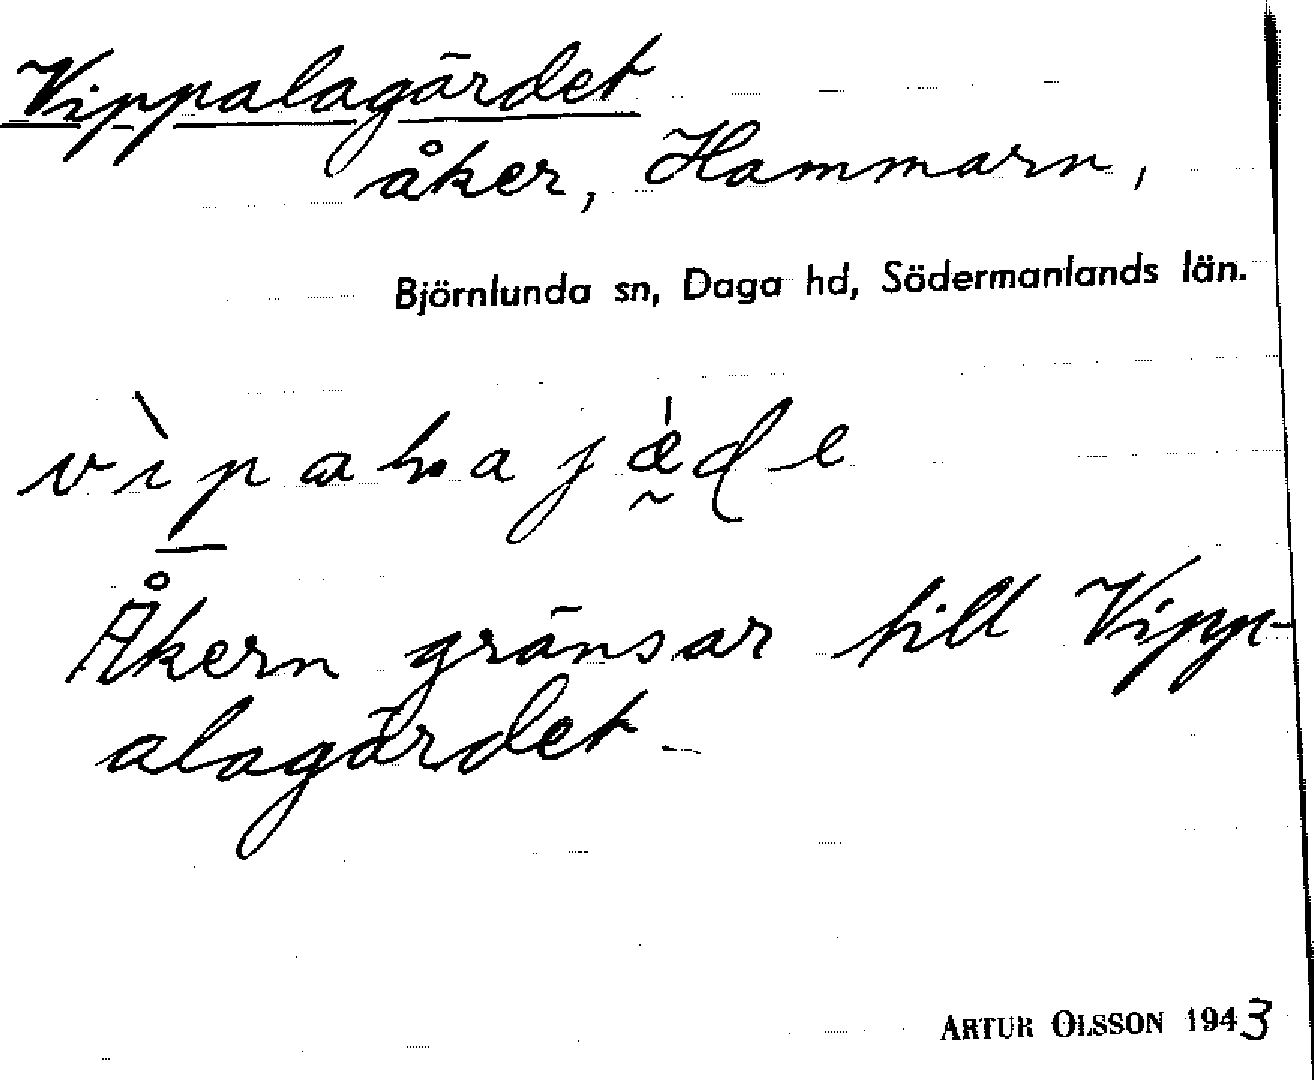 Vippalagärdet
åker, Hammarn,
Björnlunda sn, Daga hd, Södermanlands län.
Åkern gränsar till Vipp-
alagärdet
ARTUR OLSSON 1943